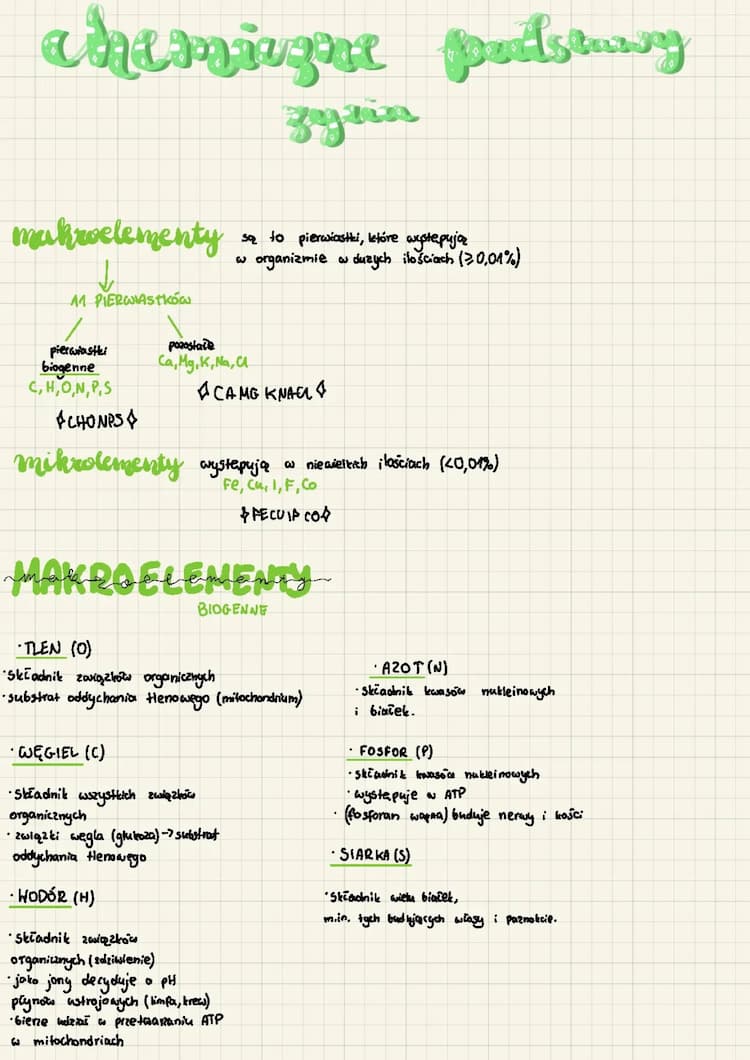 chemiczne podstawy
życia
makroelementy są to pierwiastki, które występują
w organizmie w dużych ilościach (≥0,01%)
11 PIERWIASTKÓW
pierwiastki
biogenne
C, H, O, N, P, S
CHONPS
pozostałe
Ca, Mg, K, Na, Cl
CAMG KNACL
mikrolementy występują w niewielkich ilościach (<0,01%)
Fe, Cu, I, F, Co
FECUIF CO
MAKROELEMENTY
makroelementy
BIOGENNE
· TLEN (O)
· składnik związków organicznych
· substrat oddychania tlenowego (mitochondrium)
· WĘGIEL (C)
· składnik wszystkich związków
organicznych
· związki węgla (glukoza) → substrat
oddychania tlenowego
· WODÓR (H)
· składnik związków
organicznych (zdziwienie)
· jako jony decyduje o pH
płynów ustrojowych (limfa, krew)
· bierze udział w przetwarzaniu ATP
w mitochondriach
· AZOT (N)
· składnik kwasów nukleinowych
i białek.
· FOSFOR (P)
· składnik kwasów nukleinowych
· występuje w ATP
· (fosforan wapnia) buduje nerwy i kości
· SIARKA (S)
· składnik wielu białek,
m.in. tych budujących włosy i paznokcie.